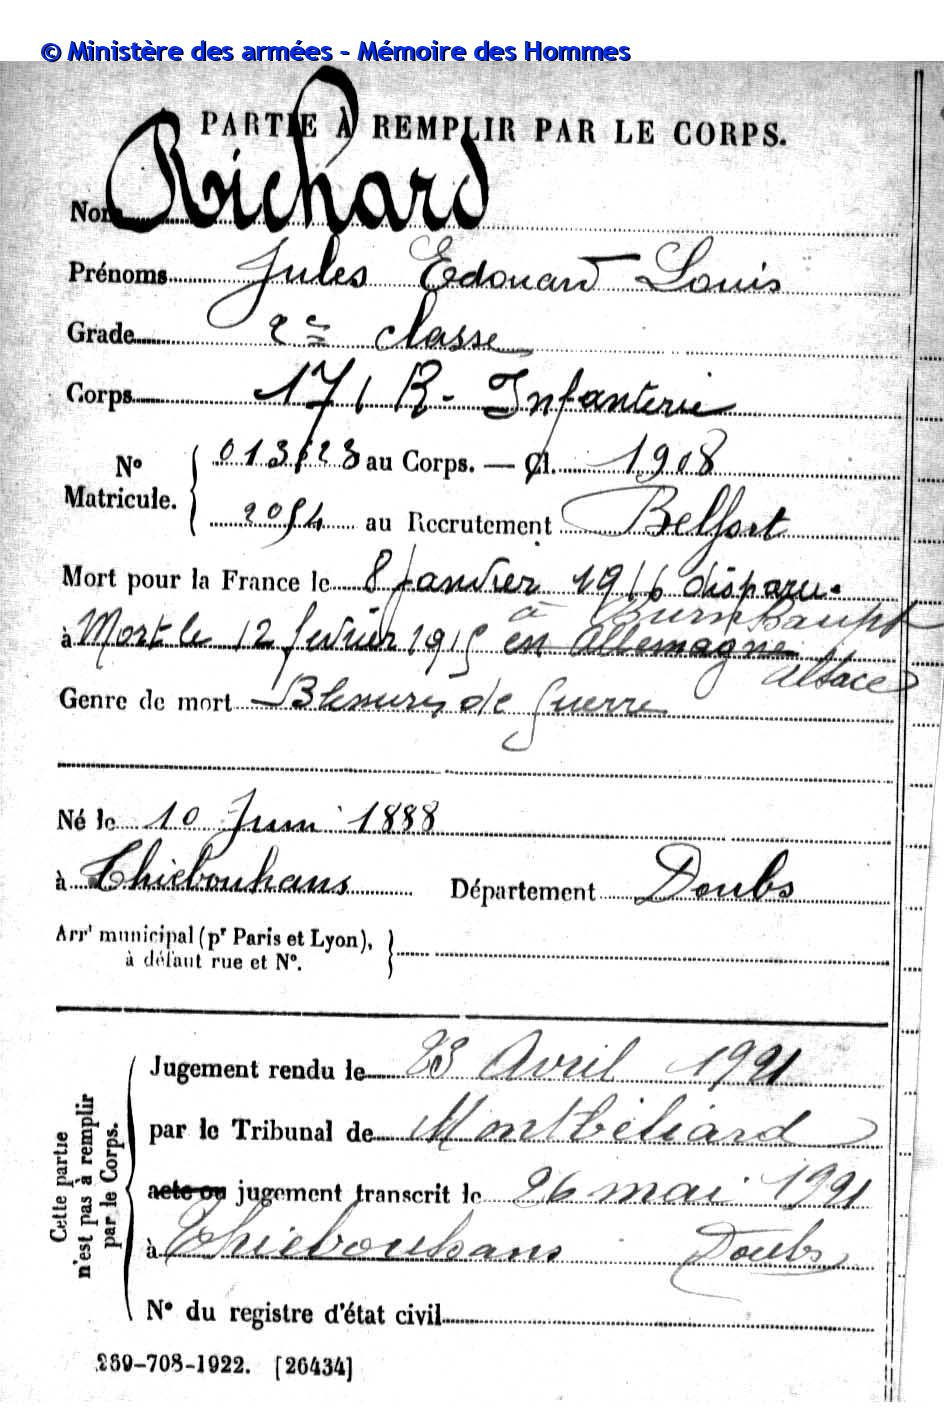 © Ministère des armées - Mémoire des Hommes
PARTIE À REMPLIR PAR LE CORPS.
Nom Richard
Prénoms Jules Edouard Louis
Grade 2e classe
Corps 171 R. Infanterie
No Matricule. 013628 au Corps. — Cl. 1908
2054 au Recrutement Belfort
Mort pour la France le 8 Janvier 1916 disparu.
à Burnhaupt
à Mort le 12 février 1915 en Allemagne
Alsace
Genre de mort Blessures de Guerre
Né le 10 Juin 1888
à Thiebouhans Département Doubs
Arrt municipal (pr Paris et Lyon),
à défaut rue et No.
Cette partie
n'est pas à remplir
par le Corps.
Jugement rendu le 23 Avril 1921
par le Tribunal de Montbéliard
acte ou jugement transcrit le 26 mai 1921
à Thiebouhans Doubs
No du registre d'état civil
269-708-1922. [26434]